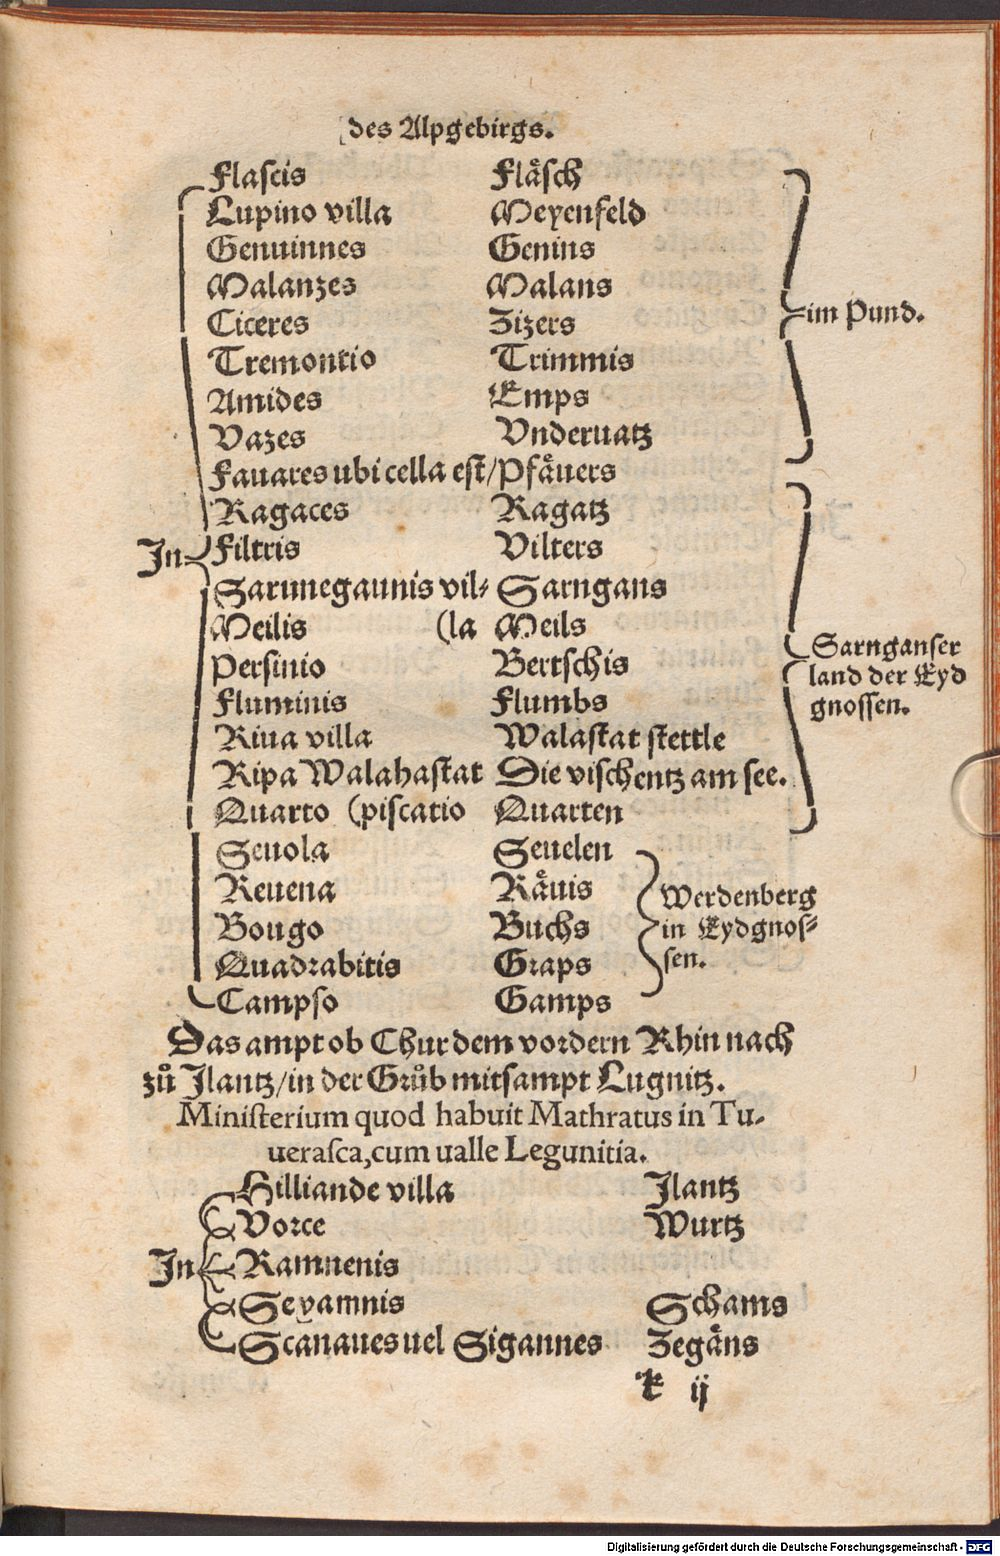 des Alpgebirgs.
Flascis Fläsch
Lupino villa Meyenfeld
Genuinnes Genins
Malanzes Malans
Ciceres Zizers
im Pund.
Tremontio Trimmis
Amides Emps
Vazes Vnderuatz
Fauares ubi cella est/Pfäuers
Ragaces Ragatz
In Filtris Vilters
Sarunegaunis vil- Sarngans
Meilis (la Meils
Sarnganser
Persinio Bertschis
land der Eyd
Fluminis Flumbs
gnossen.
Riua villa Walastat stettle
Ripa Walahastat Die vischentz am see.
Quarto (piscatio Quarten
Seuola Seuelen
Reuena Räuis
Werdenberg
Bougo Buchs
in Eydgnos-
Quadrabitis Graps
sen.
Campso Gamps
Das ampt ob Chur dem vordern Rhin nach
zů Jlantz/in der Grůb mitsampt Lugnitz.
Ministerium quod habuit Mathratus in Tu-
uerasca,cum ualle Legunitia.
Hilliande villa Jlantz
Vorce Wurtz
In Ramnenis
Seyamnis Schams
Scanaues uel Sigannes Zegäns
k ij
Digitalisierung gefördert durch die Deutsche Forschungsgemeinschaft - DFG